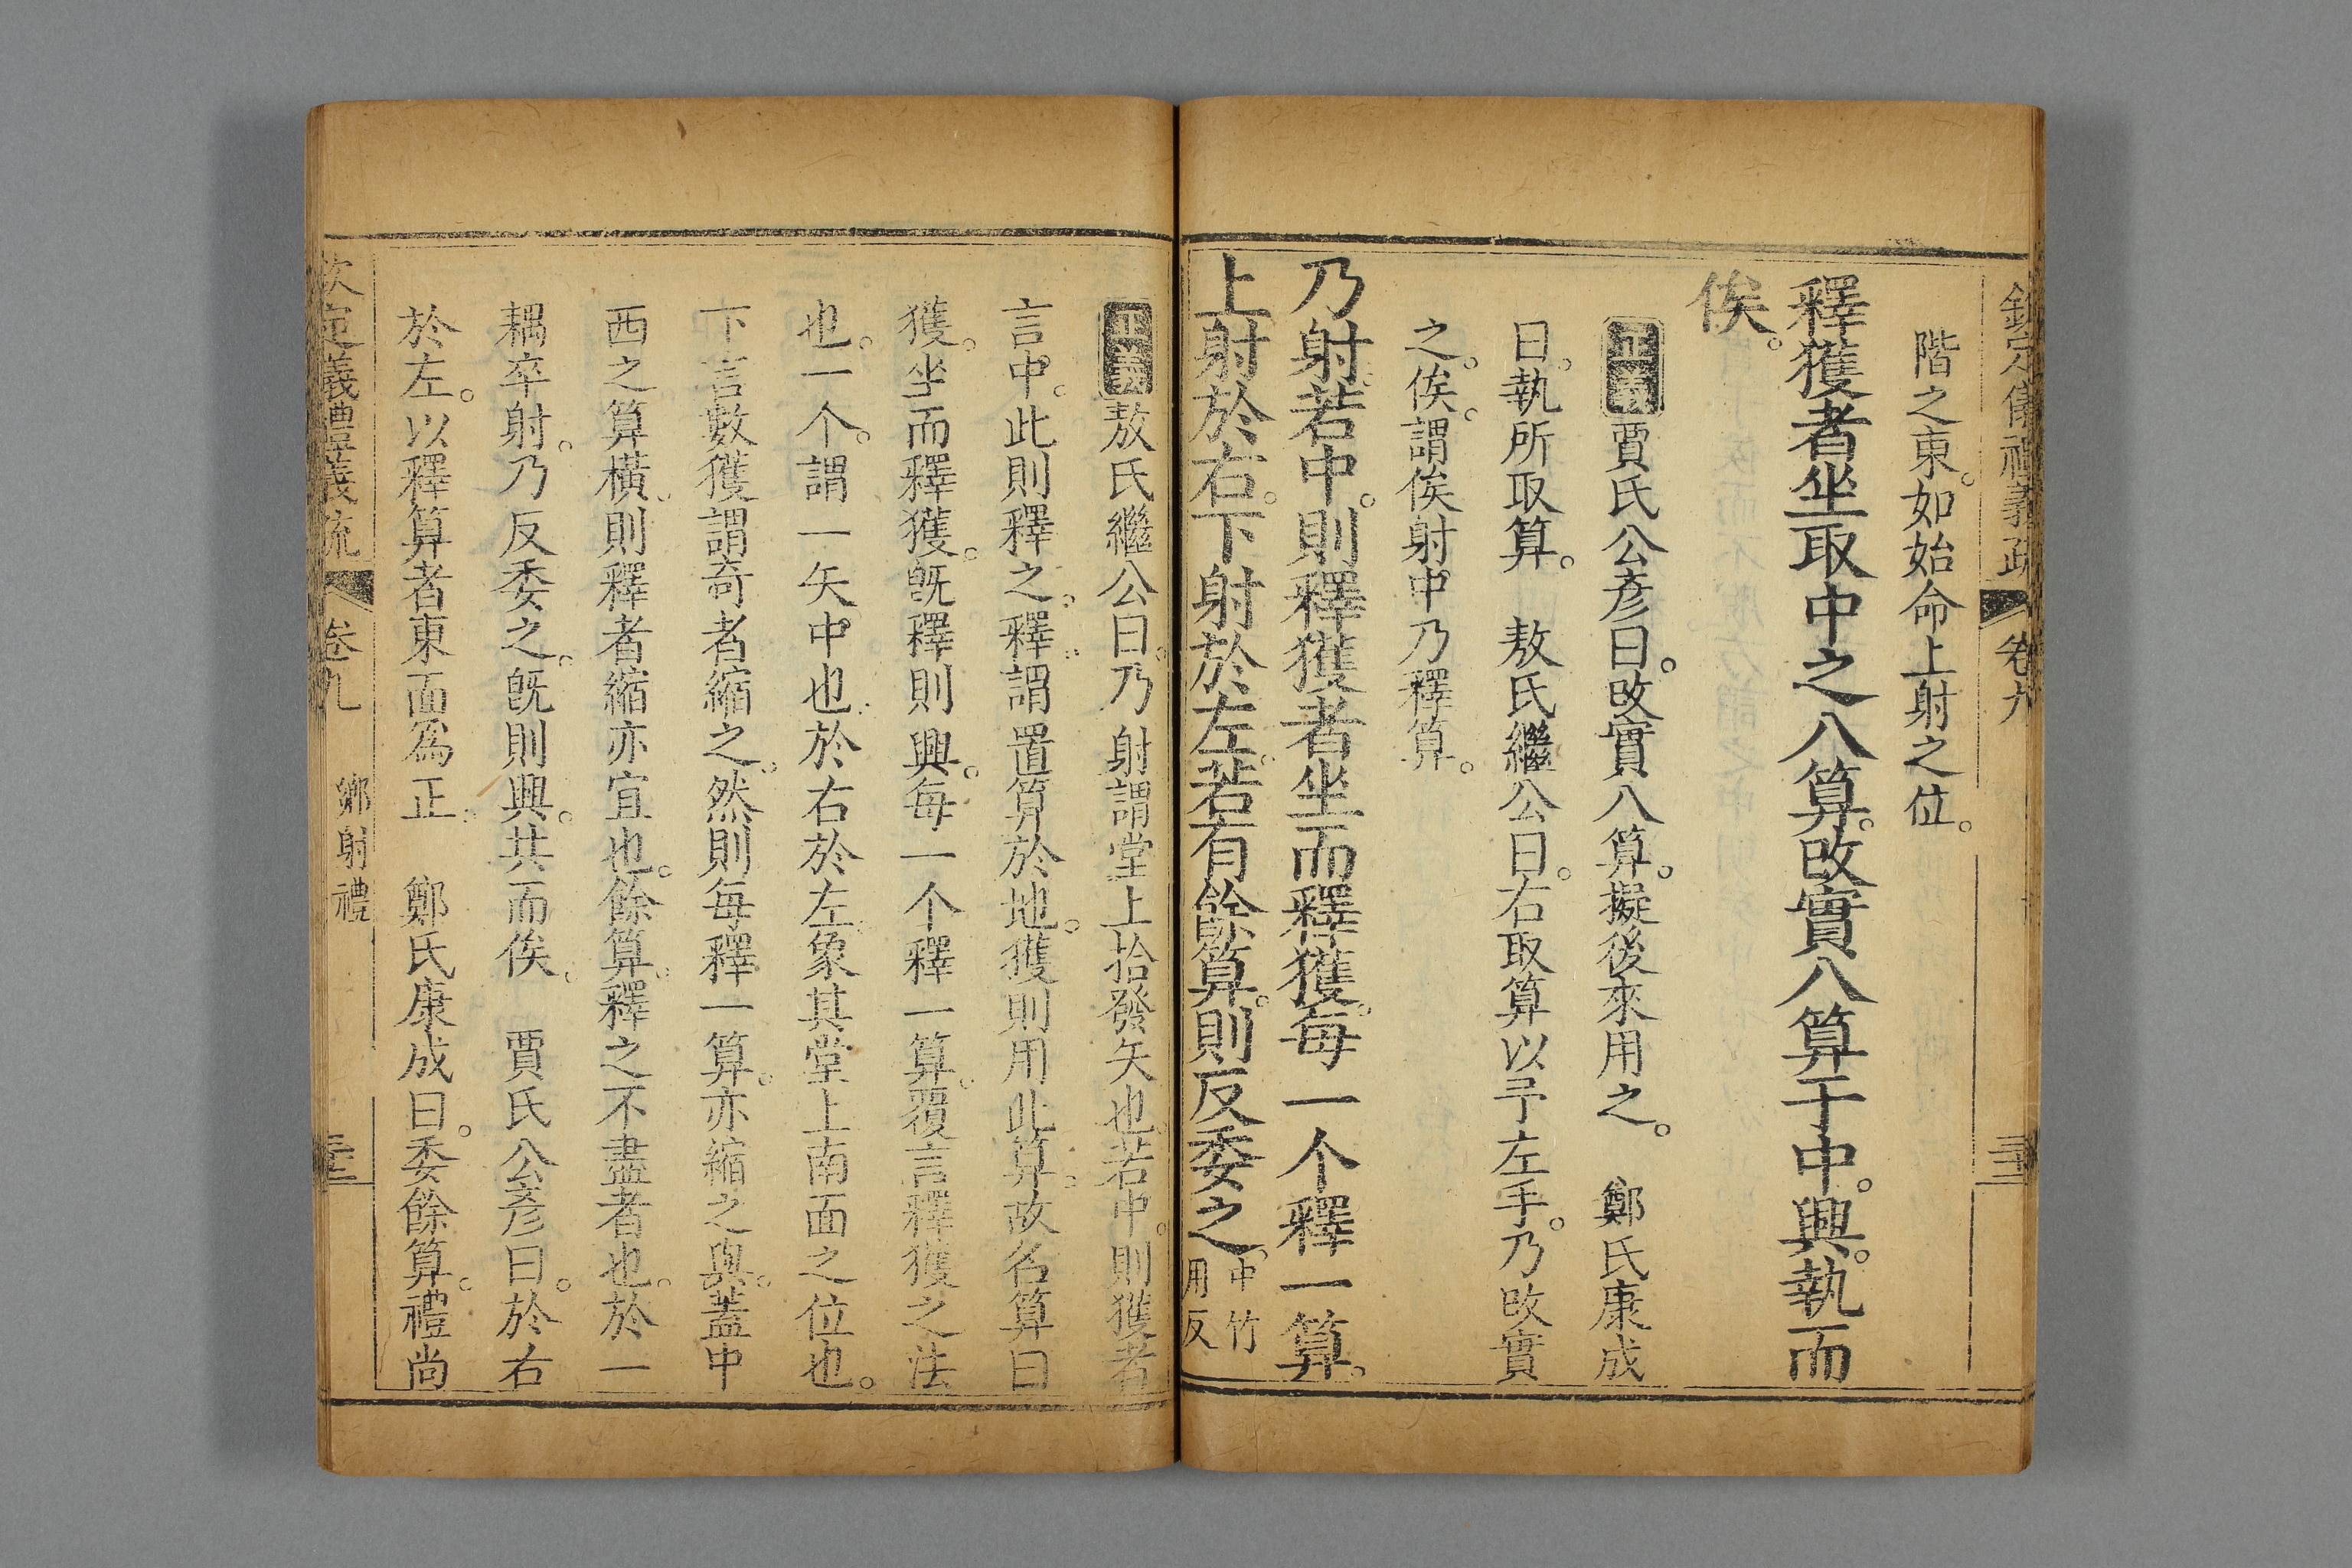 欽定儀禮義疏 卷九 三十三
階之東。如始命上射之位。
釋獲者坐取中之八算。改實八算于中。興。執而
俟。
正義賈氏公彥曰。改實八算。擬後來用之。 鄭氏康成
曰。執所取算。 敖氏繼公曰。右取算以予左手。乃改實
之。俟。謂俟射中乃釋算。
乃射。若中。則釋獲者坐而釋獲。每一个釋一算。
上射於右。下射於左。若有餘算。則反委之。中竹
用反
正義敖氏繼公曰。乃射謂堂上拾發矢也。若中。則獲者
言中。此則釋之。釋。謂置算於地。獲則用此算。故名算曰
獲。坐而釋獲。旣釋則興。每一个釋一算。覆言釋獲之法
也。一个。謂一矢中也。於右於左。象其堂上南面之位也。
下言數獲謂奇者縮之。然則每釋一算。亦縮之與。蓋中
西之算橫。則釋者縮亦宜也。餘算。釋之不盡者也。於一
耦卒射。乃反委之。旣則興。共而俟。 賈氏公彥曰。於右
於左。以釋算者東面爲正。 鄭氏康成曰。委餘算。禮尚
欽定儀禮義疏 卷九 鄉射禮 三十三